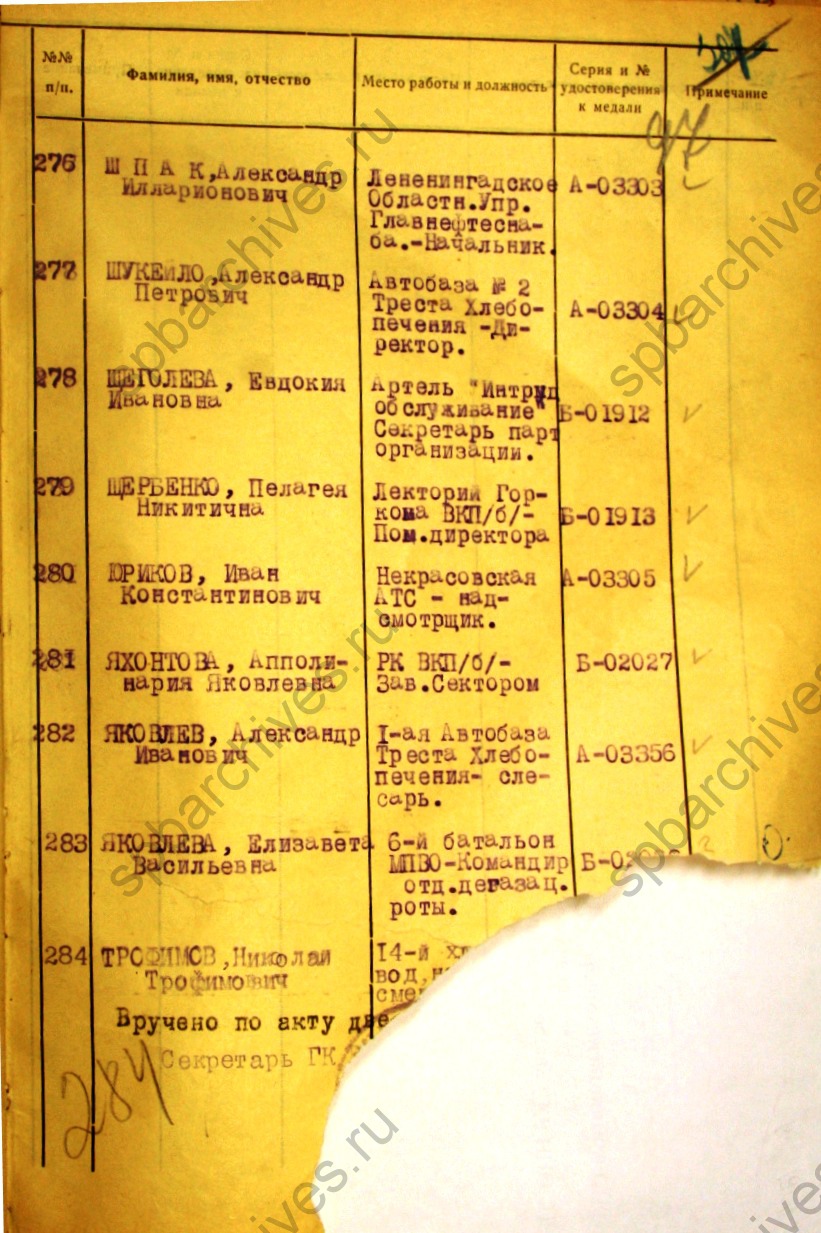 №№ п/п.
Фамилия, имя, отчество
Место работы и должность
Серия и № удостоверения к медали
Примечание
97
276
Ш П А К,Александр
Илларионович
Лененингадское
Областн.Упр.
Главнефтесна-
ба.-Начальник.
А-03303
277
ШУКЕЙЛО,Александр
Петрович
Автобаза № 2
Треста Хлебо-
печения -Ди-
ректор.
А-03304
278
ЩЕГОЛЕВА, Евдокия
Ивановна
Артель "Интруд
обслуживание"
Секретарь парт
организации.
Б-01912
279
ЩЕРБЕНКО, Пелагея
Никитична
Лекторий Гор-
кома ВКП/б/-
Пом.директора
Б-01913
280
ЮРИКОВ, Иван
Константинович
Некрасовская
АТС - над-
смотрщик.
А-03305
281
ЯХОНТОВА, Апполи-
нария Яковлевна
РК ВКП/б/-
Зав.Сектором
Б-02027
282
ЯКОВЛЕВ, Александр
Иванович
I-ая Автобаза
Треста Хлебо-
печения- сле-
сарь.
А-03356
283
ЯКОВЛЕВА, Елизавета
Васильевна
6-й батальон
МПВО-Командир
отд.дегазац.
роты.
284
ТРОФИМОВ,Николай
Трофимович
14-й
Вручено по акту
Секретарь ГК
284
spbarchives.ru